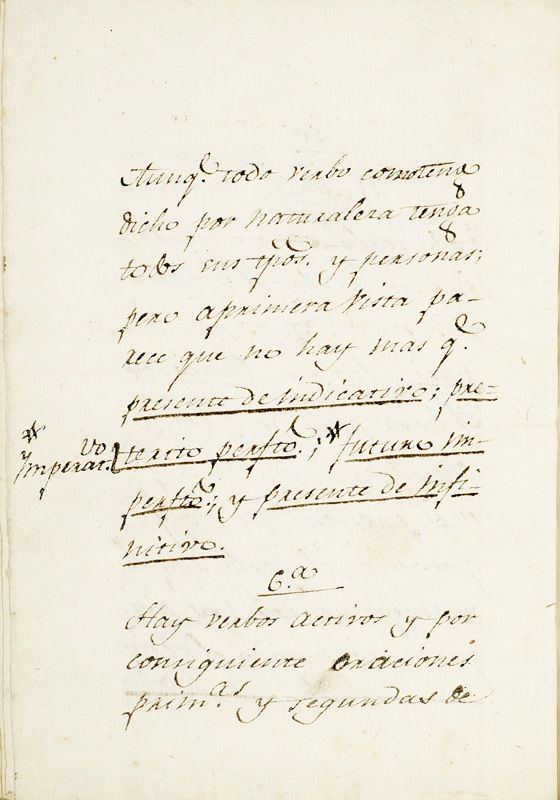 Aunq.e todo verbo como teng
dicho por naturaleza tenga
todos sus tpōs. y personas;
pero aprimera vista pa-
rece que no hay mas q.e
presente de indicativo; pre-
terito perfto.; * futuro im-
* y Imperat.vo
perfto.; y presente de infi-
nitivo.
6.a
Hay verbos activos y por
consiguiente oraciones
prim.as y segundas de